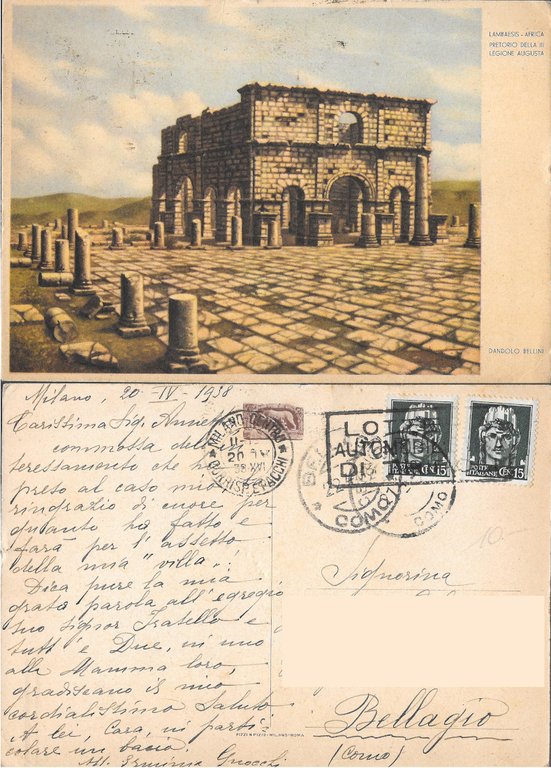 LAMBAESIS - AFRICA
PRETORIO DELLA III
LEGIONE AUGUSTA
DANDOLO BELLINI
Milano, 20 - IV - 1938
Carissima Sig.
commossa del
teressamento che ha
preso al caso mio
ringrazio di cuore per
quanto ha fatto e
farà per l'assetto
della mia "villa".
Dica pure la mia
grata parola all'egregio
suo signor Fratello e
tutti e Due, in uno
alla Mamma loro,
gradiscano il mio
cordialissimo saluto
A lei, Cara, in parti-
colare un bacio.
Erminia Gnocchi
MILANO CENTRO
20
38 XVI
LOTT
AUTOM
DI
COMO
COMO
POSTE
ITALIANE CEN. 15
POSTE
ITALIANE CEN. 15
10.
Signorina
Bellagio
(Como)
PIZZI & PIZIO - MILANO-ROMA